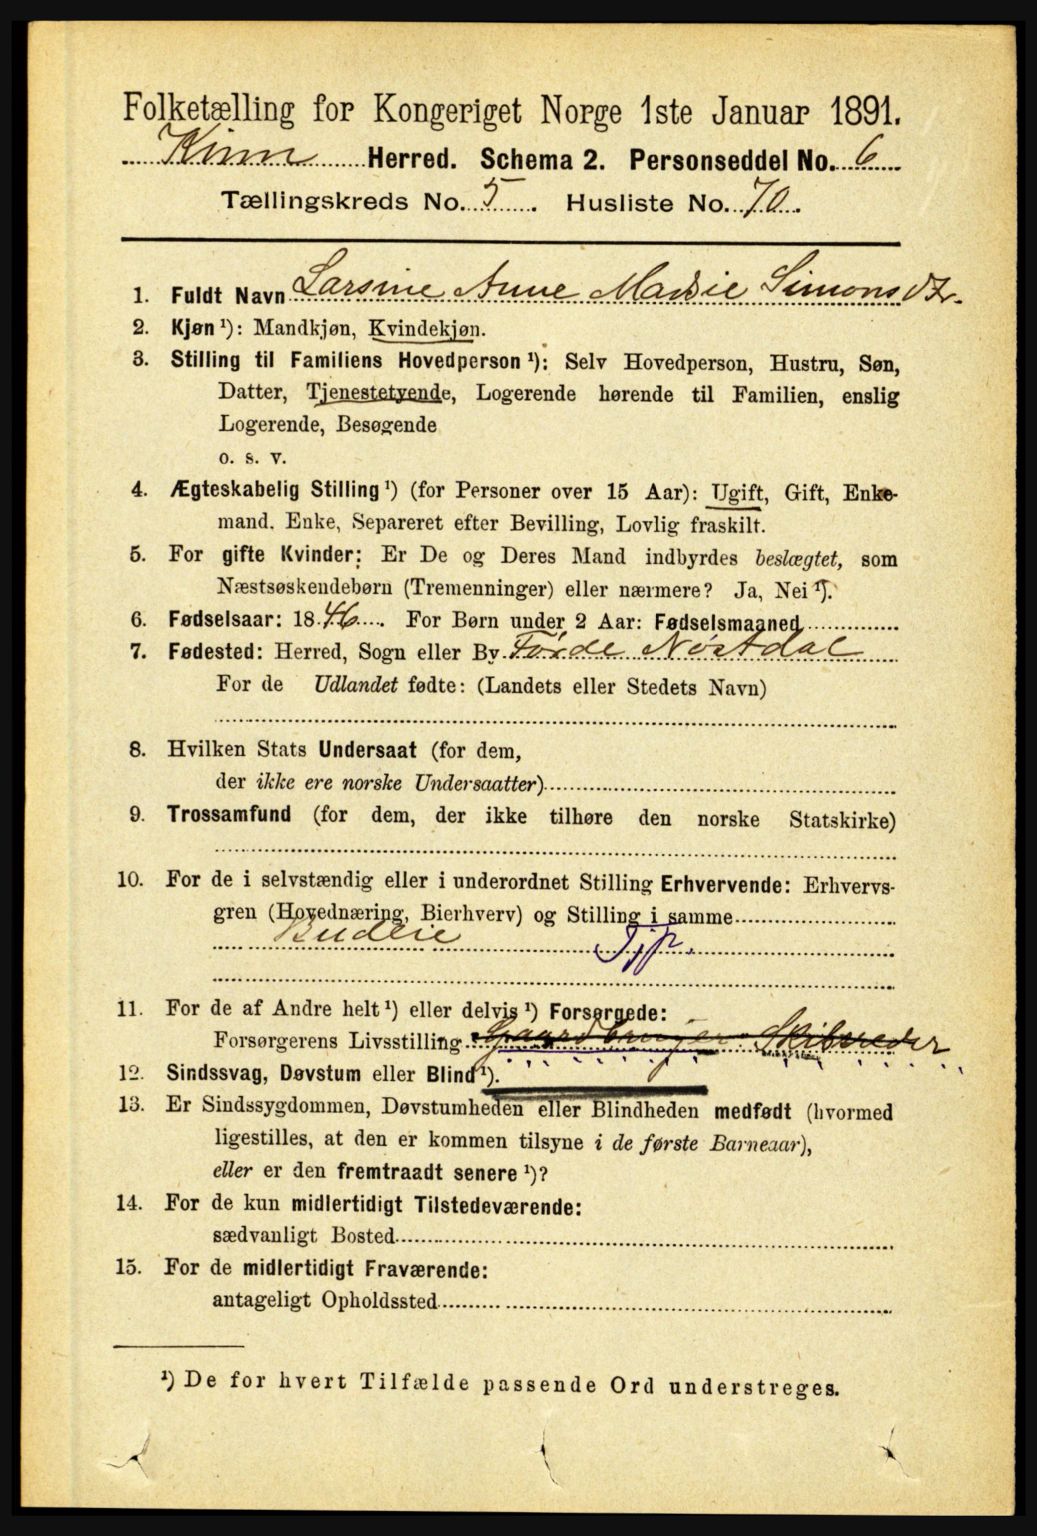 Folketælling for Kongeriget Norge 1ste Januar 1891.
Kinn Herred. Schema 2. Personseddel No. 6
Tællingskreds No. 5. Husliste No. 70.
1. Fuldt Navn Larsine Anne Simonsdtr.
2. Kjøn ¹): Mandkjøn, Kvindekjøn.
3. Stilling til Familiens Hovedperson ¹): Selv Hovedperson, Hustru, Søn,
Datter, Tjenestetyende, Logerende hørende til Familien, enslig
Logerende, Besøgende
o. s. v.
4. Ægteskabelig Stilling ¹) (for Personer over 15 Aar): Ugift, Gift, Enke-
mand, Enke, Separeret efter Bevilling, Lovlig fraskilt.
5. For gifte Kvinder: Er De og Deres Mand indbyrdes beslægtet, som
Næstsøskendebørn (Tremenninger) eller nærmere? Ja, Nei ¹).
6. Fødselsaar: 1846. For Børn under 2 Aar: Fødselsmaaned
7. Fødested: Herred, Sogn eller By Førde Nøstdal
For de Udlandet fødte: (Landets eller Stedets Navn)
8. Hvilken Stats Undersaat (for dem,
der ikke ere norske Undersaatter)
9. Trossamfund (for dem, der ikke tilhøre den norske Statskirke)
10. For de i selvstændig eller i underordnet Stilling Erhvervende: Erhvervs-
gren (Hovednæring, Bierhverv) og Stilling i samme
Budeie Tjp.
11. For de af Andre helt ¹) eller delvis ¹) Forsørgede:
Forsørgerens Livsstilling Gaardbruger Skibsreder
12. Sindssvag, Døvstum eller Blind ¹).
13. Er Sindssygdommen, Døvstumheden eller Blindheden medfødt (hvormed
ligestilles, at den er kommen tilsyne i de første Barneaar),
eller er den fremtraadt senere ¹)?
14. For de kun midlertidigt Tilstedeværende:
sædvanligt Bosted
15. For de midlertidigt Fraværende:
antageligt Opholdssted
¹) De for hvert Tilfælde passende Ord understreges.